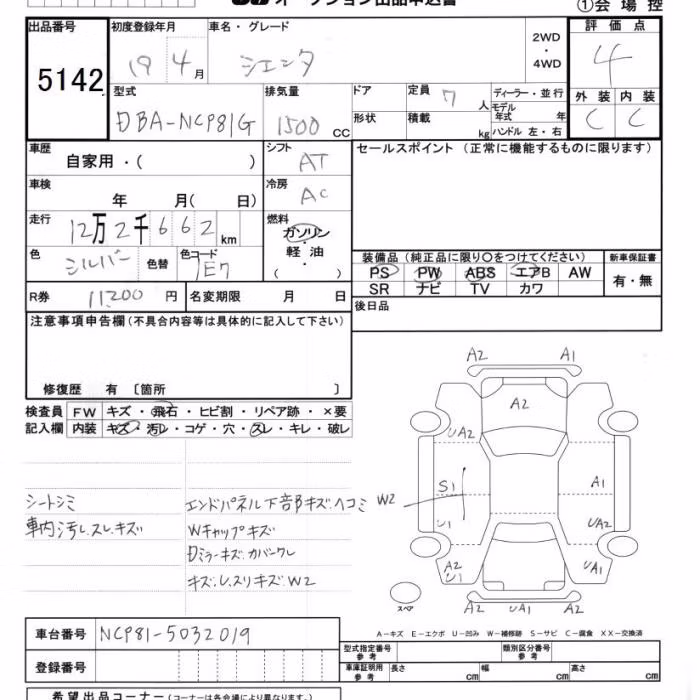 オークション出品申込書
①会場控
出品番号 初度登録年月 車名・グレード 2WD ・ 4WD 評価点
5142 19 4 月 シエンタ 4
型式 排気量 ドア 定員 7 人 ディーラー・並行 外装 内装
DBA-NCP81G 1500 cc 形状 積載 kg モデル年式 年 ハンドル 左・右 C C
車歴 シフト セールスポイント (正常に機能するものに限ります)
自家用・( ) AT
車検 冷房
年 月( 日) AC
走行 燃料
12万2千662km ガソリン・
色 色替 色コード 軽油・
シルバー 1E7 ( )
装備品(純正品に限り○をつけてください) 新車保証書
PS PW ABS エアB AW 有・無
SR ナビ TV カワ
R券 11,200 円 名変期限 月 日 後日品
注意事項申告欄(不具合内容等は具体的に記入して下さい)
修復歴 有 〔箇所 〕
検査員 FW キズ・飛石・ヒビ割・リペア跡・×要
記入欄 内装 キズ・汚レ・コゲ・穴・スレ・キレ・破レ
A2 A1
A2
UA2
シートシミ エンドパネル下部キズ.ヘコミ W2 S1 A1
車内汚レ.スレ.キズ Wキャップキズ U1 UA2
Dミラーキズ.カバーワレ A2 UA1
キズ.U.スリキズ.W2 U1
スペア A2 UA1 A2
車台番号 NCP81-5032019
A-キズ E-エクボ U-凹み W-補修跡 S-サビ C-腐食 XX-交換済
型式指定番号 参考 類別区分番号 参考
登録番号 車庫証明用 参考 長さ cm 幅 cm 高さ cm
希望出品コーナー(コーナーは各会場により異なります。)